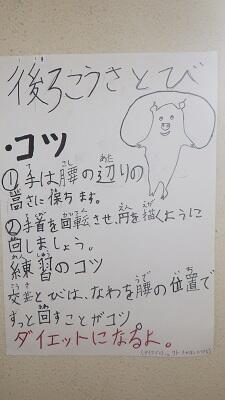 後ろこうさとび
・コツ
①手は腰の辺りの
高さに保ちます。
②手首を回転させ、円を描くように
回しましょう。
練習のコツ
交差とびは、なわを腰の位置で
ずっと回すことがコツ。
ダイエットになるよ。